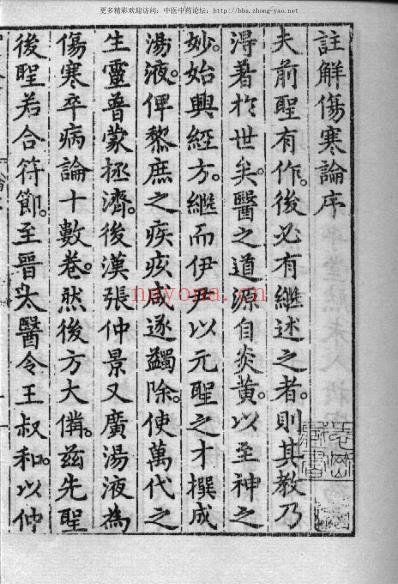 更多精彩欢迎访问：中医中药论坛：http://bbs.zhong-yao.net
註解傷寒論序
夫前聖有作。後必有繼述之者。則其教乃
淂著於世矣。醫之道源自炎黃。以至神之
妙。始興經方。繼而伊尹以元聖之才撰成
湯液。俾黎庶之疾疢咸遂蠲除。使萬代之
生靈普蒙拯濟。後漢張仲景又廣湯液為
傷寒卒病論十數卷。然後方大備。茲先聖
後聖若合符節。至晉太醫令王叔和。以仲
nayona.cn